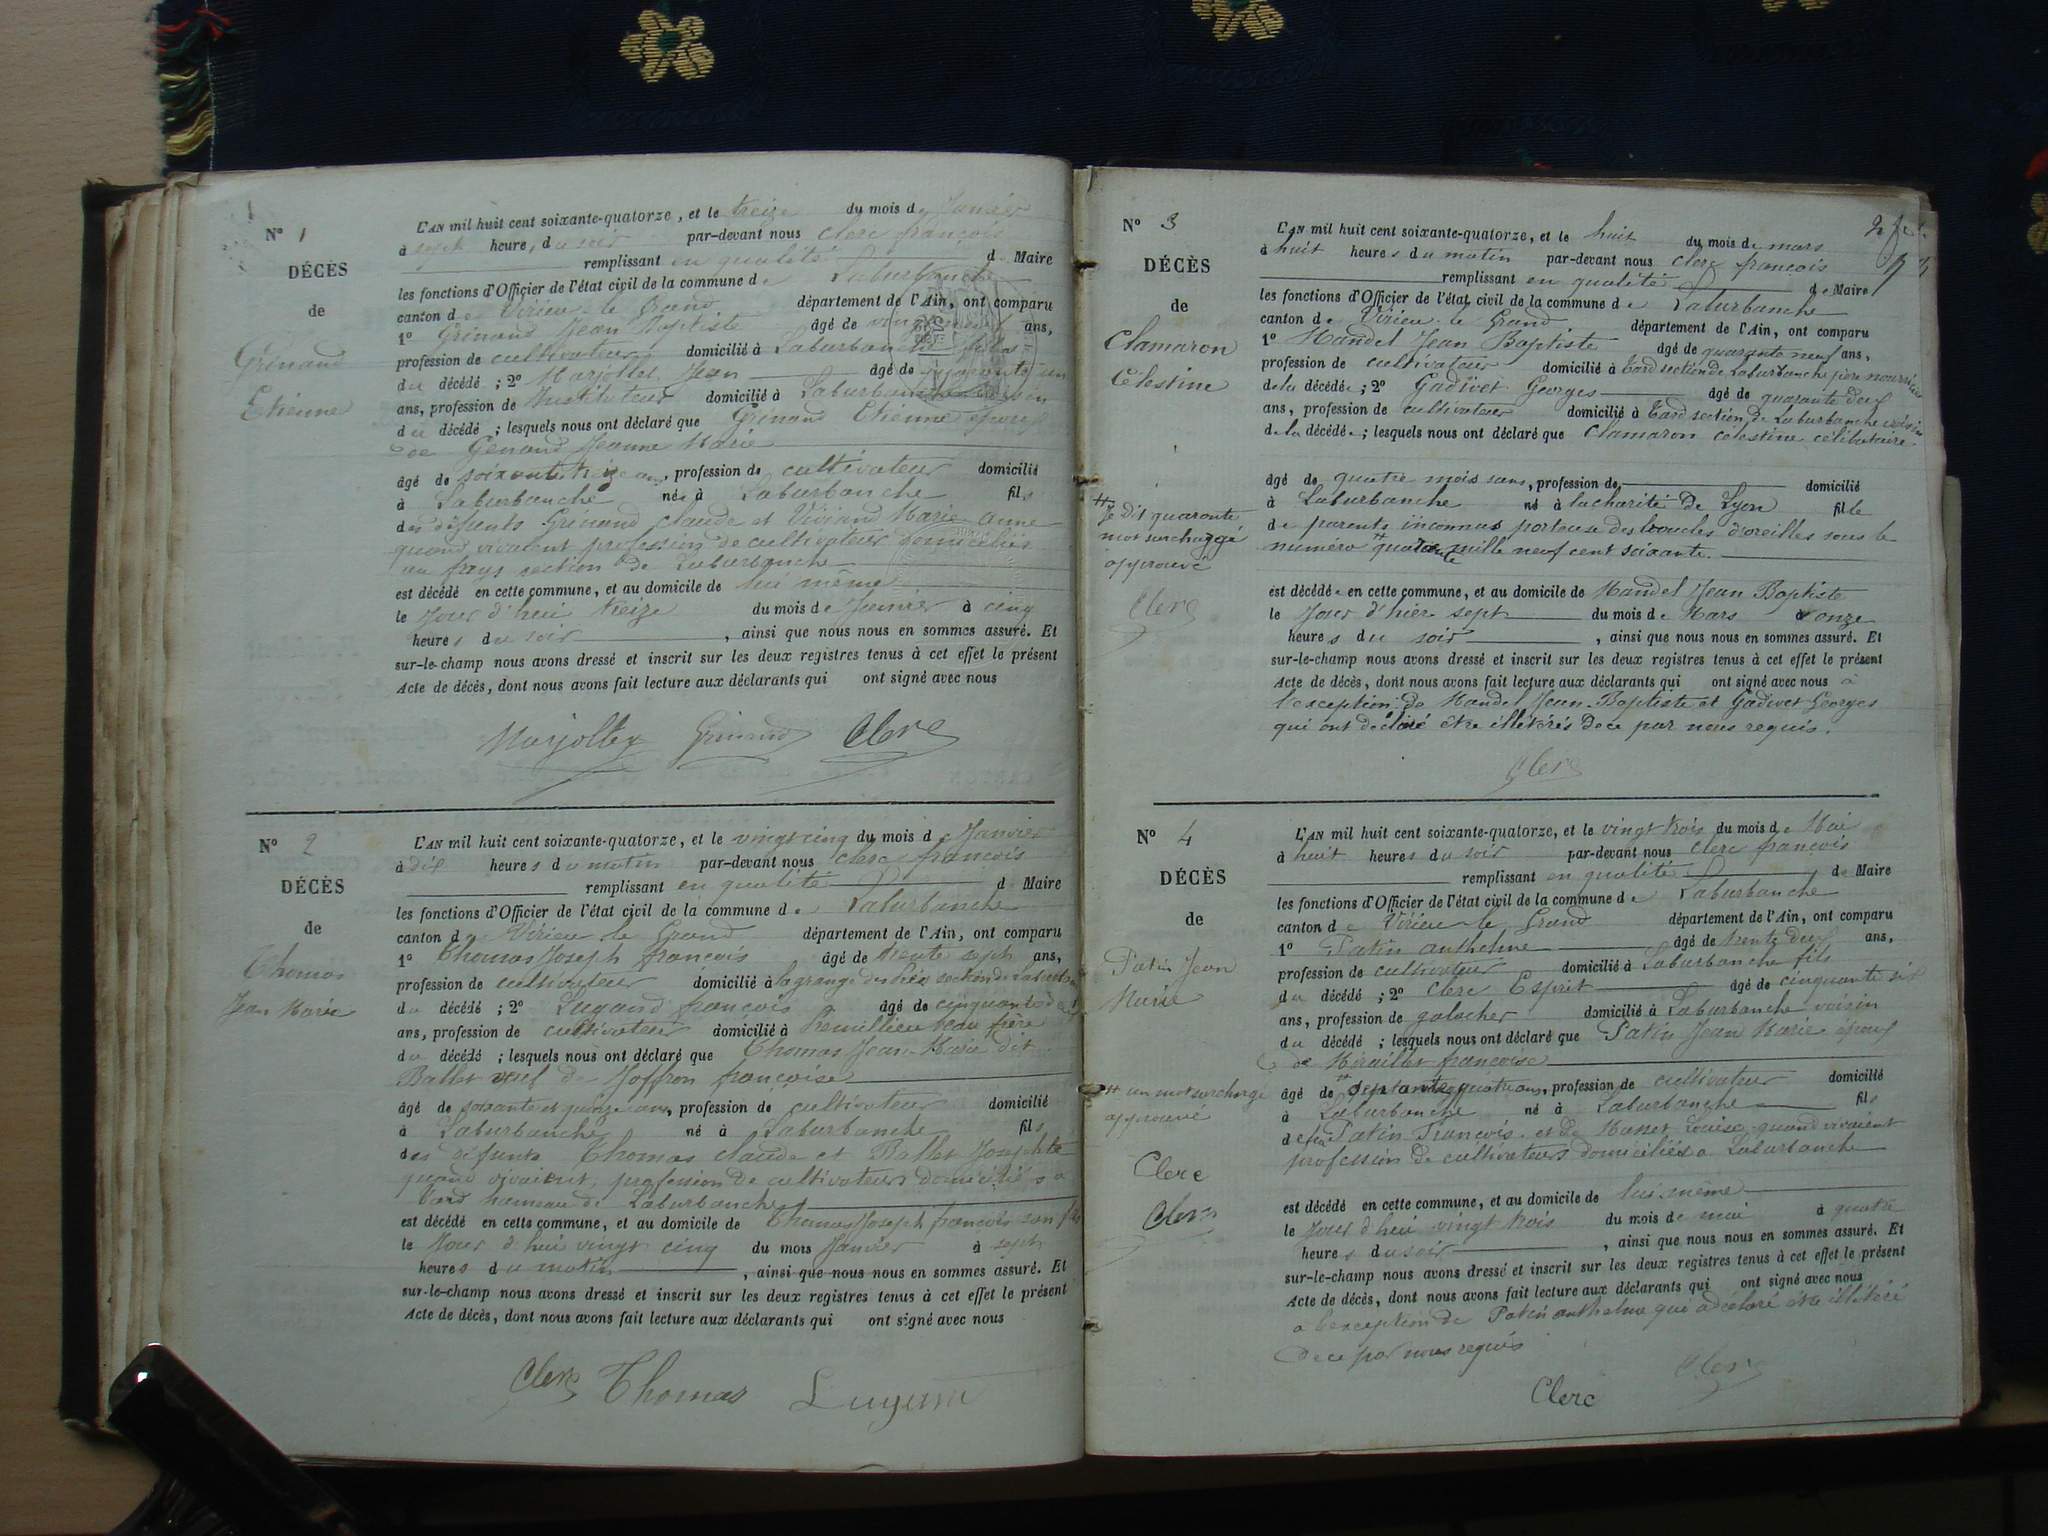 Nº 1
DÉCÈS
de
Grinand
Etienne
L'AN mil huit cent soixante-quatorze, et le treize du mois de Janvier
à sept heures du soir par-devant nous clerc françois
remplissant en qualité de Maire
les fonctions d'Officier de l'état civil de la commune de Laburbanche
canton de Virieu le Grand département de l'Ain, ont comparu
1º Grinand Jean Baptiste âgé de ans,
profession de cultivateur domicilié à Laburbanche fils
du décédé ; 2º Marjollet Jean âgé de quarante un
ans, profession de Instituteur domicilié à Laburbanche
du décédé ; lesquels nous ont déclaré que Grinand Etienne époux
de Genand Jeanne Marie
âgé de soixante treize ans, profession de cultivateur domicilié
à Laburbanche né à Laburbanche fils
des défunts Grinand Claude et Viviand Marie Anne
quand vivaient profession de cultivateur domiciliés
au section de Laburbanche
est décédé en cette commune, et au domicile de lui même
le Jour d'hui treize du mois de Janvier à cinq
heures du soir , ainsi que nous nous en sommes assuré. Et
sur-le-champ nous avons dressé et inscrit sur les deux registres tenus à cet effet le présent
Acte de décès, dont nous avons fait lecture aux déclarants qui ont signé avec nous
Marjollet Grinand Clerc
Nº 2
DÉCÈS
de
Thomas
Jean Marie
L'AN mil huit cent soixante-quatorze, et le vingt cinq du mois de Janvier
à dix heures du matin par-devant nous clerc françois
remplissant en qualité de Maire
les fonctions d'Officier de l'état civil de la commune de Laburbanche
canton de Virieu le Grand département de l'Ain, ont comparu
1º Thomas Joseph françois âgé de trente sept ans,
profession de cultivateur domicilié à lagrange section de Laburbanche
du décédé ; 2º Lugand françois âgé de cinquante
ans, profession de cultivateur domicilié à Premillieu beau frère
du décédé ; lesquels nous ont déclaré que Thomas Jean Marie dit
Ballet veuf de Joffron françoise
âgé de soixante et quinze ans, profession de cultivateur domicilié
à Laburbanche né à Laburbanche fils
des défunts Thomas claude et Ballet Josephte
quand vivaient profession de cultivateurs domiciliés à
hameau de Laburbanche
est décédé en cette commune, et au domicile de Thomas Joseph françois son fils
le Jour d'hui vingt cinq du mois Janvier à sept
heures du matin , ainsi que nous nous en sommes assuré. Et
sur-le-champ nous avons dressé et inscrit sur les deux registres tenus à cet effet le présent
Acte de décès, dont nous avons fait lecture aux déclarants qui ont signé avec nous
Clerc Thomas Lugand
Nº 3
DÉCÈS
de
Clamaron
Célestine
Je dit quarante
mot surchargé
approuvé
Clerc
L'AN mil huit cent soixante-quatorze, et le huit du mois de mars
à huit heures du matin par-devant nous clerc françois
remplissant en qualité de Maire
les fonctions d'Officier de l'état civil de la commune de Laburbanche
canton de Virieu le Grand département de l'Ain, ont comparu
1º Mandel Jean Baptiste âgé de quarante neuf ans,
profession de cultivateur domicilié à section de Laburbanche père nourricier
de la décédée ; 2º Gadivet Georges âgé de quarante deux
ans, profession de cultivateur domicilié à section de Laburbanche voisin
de la décédée ; lesquels nous ont déclaré que Clamaron celestine célibataire
âgé de quatre mois sans, profession de domicilié
à Laburbanche né à lacharité de Lyon fille
de parents inconnus porteuse des boucles d'oreilles sous le
numéro quarante mille neuf cent soixante.
est décédée en cette commune, et au domicile de Mandel Jean Baptiste
le Jour d'hier sept du mois de Mars à onze
heures du soir , ainsi que nous nous en sommes assuré. Et
sur-le-champ nous avons dressé et inscrit sur les deux registres tenus à cet effet le présent
Acte de décès, dont nous avons fait lecture aux déclarants qui ont signé avec nous à
l'exception de Mandel Jean-Baptiste et Gadivet Georges
qui ont déclaré être illétérés de ce par nous requis.
Clerc
Nº 4
DÉCÈS
de
Patin Jean
Marie
un mot surchargé
approuvé
Clerc
Clerc
L'AN mil huit cent soixante-quatorze, et le vingt trois du mois de Mai
à huit heures du soir par-devant nous clerc françois
remplissant en qualité de Maire
les fonctions d'Officier de l'état civil de la commune de Laburbanche
canton de Virieu le Grand département de l'Ain, ont comparu
1º Patin anthelme âgé de trente deux ans,
profession de cultivateur domicilié à Laburbanche fils
du décédé ; 2º Clerc Esprit âgé de cinquante six
ans, profession de galocher domicilié à Laburbanche voisin
du décédé ; lesquels nous ont déclaré que Patin Jean Marie époux
de Miraillet françoise
âgé de septante quatre ans, profession de cultivateur domicilié
à Laburbanche né à Laburbanche fils
de feu Patin François et de Masset Louise quand vivaient
profession de cultivateurs domiciliés à Laburbanche
est décédé en cette commune, et au domicile de lui même
le Jour d'hui vingt trois du mois de mai à quatre
heures du soir , ainsi que nous nous en sommes assuré. Et
sur-le-champ nous avons dressé et inscrit sur les deux registres tenus à cet effet le présent
Acte de décès, dont nous avons fait lecture aux déclarants qui ont signé avec nous
à l'exception de Patin anthelme qui a déclaré être illétéré
de ce par nous requis
Clerc Clerc